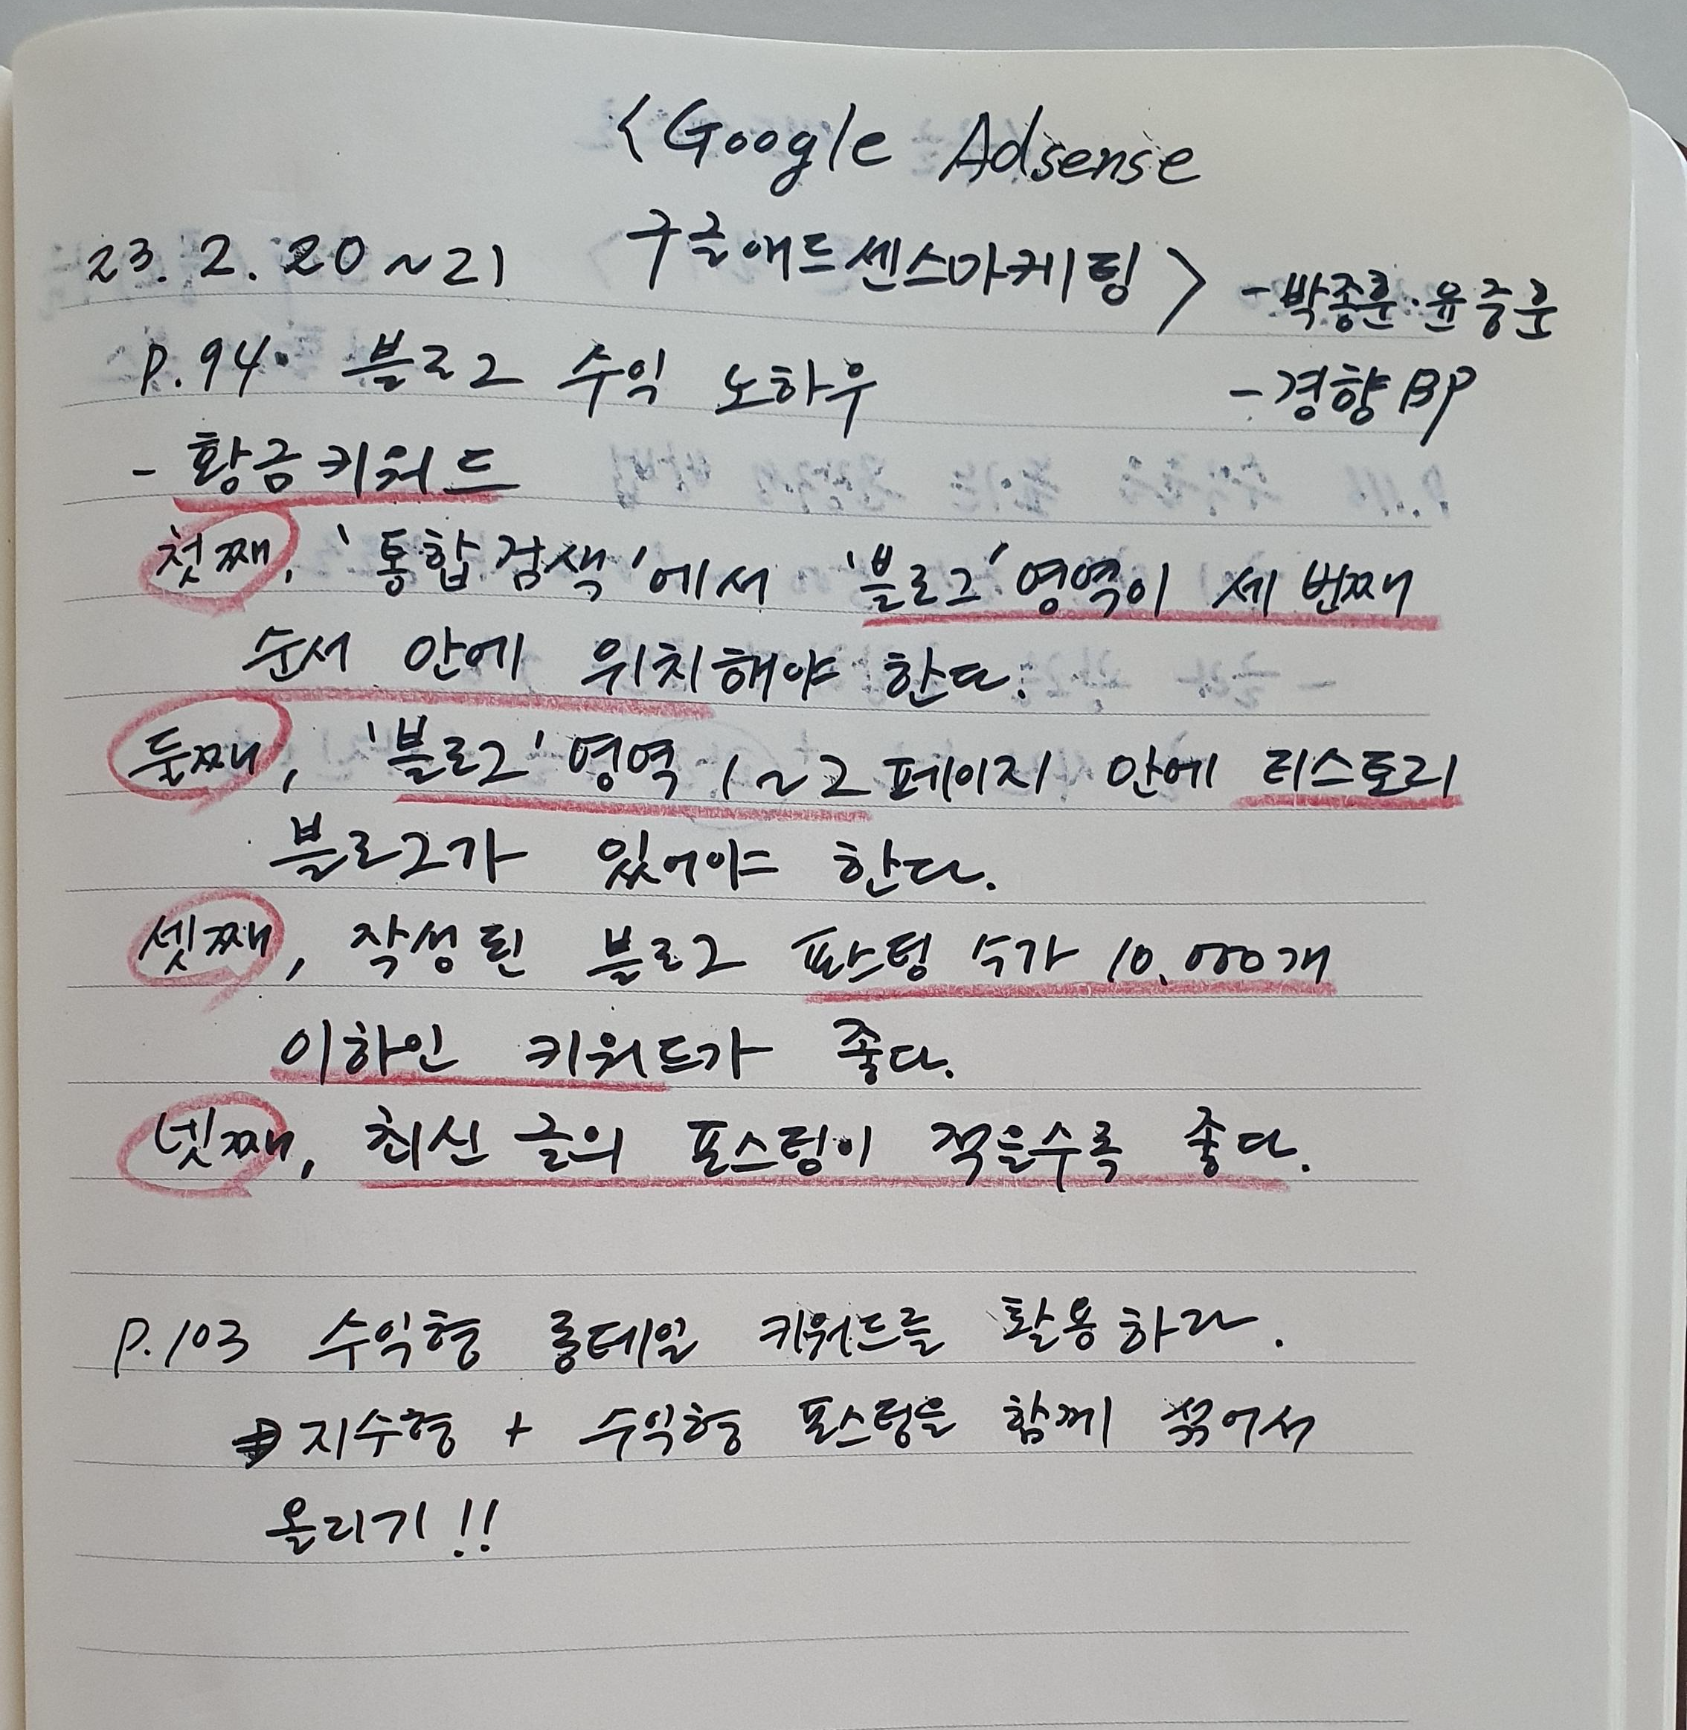 <Google Adsense
23. 2. 20~21 구글애드센스마케팅>
-박종훈·윤중훈
p.94. 블로그 수익 노하우
-경향BP
- 황금키워드
첫째, '통합검색'에서 '블로그' 영역이 세 번째
순서 안에 위치해야 한다.
둘째, '블로그' 영역 1~2페이지 안에 티스토리
블로그가 있어야 한다.
셋째, 작성된 블로그 포스팅 수가 10,000개
이하인 키워드가 좋다.
넷째, 최신 글의 포스팅이 적을수록 좋다.
p.103 수익형 롱테일 키워드를 활용하라.
→ 지수형 + 수익형 포스팅을 함께 섞어서
올리기!!